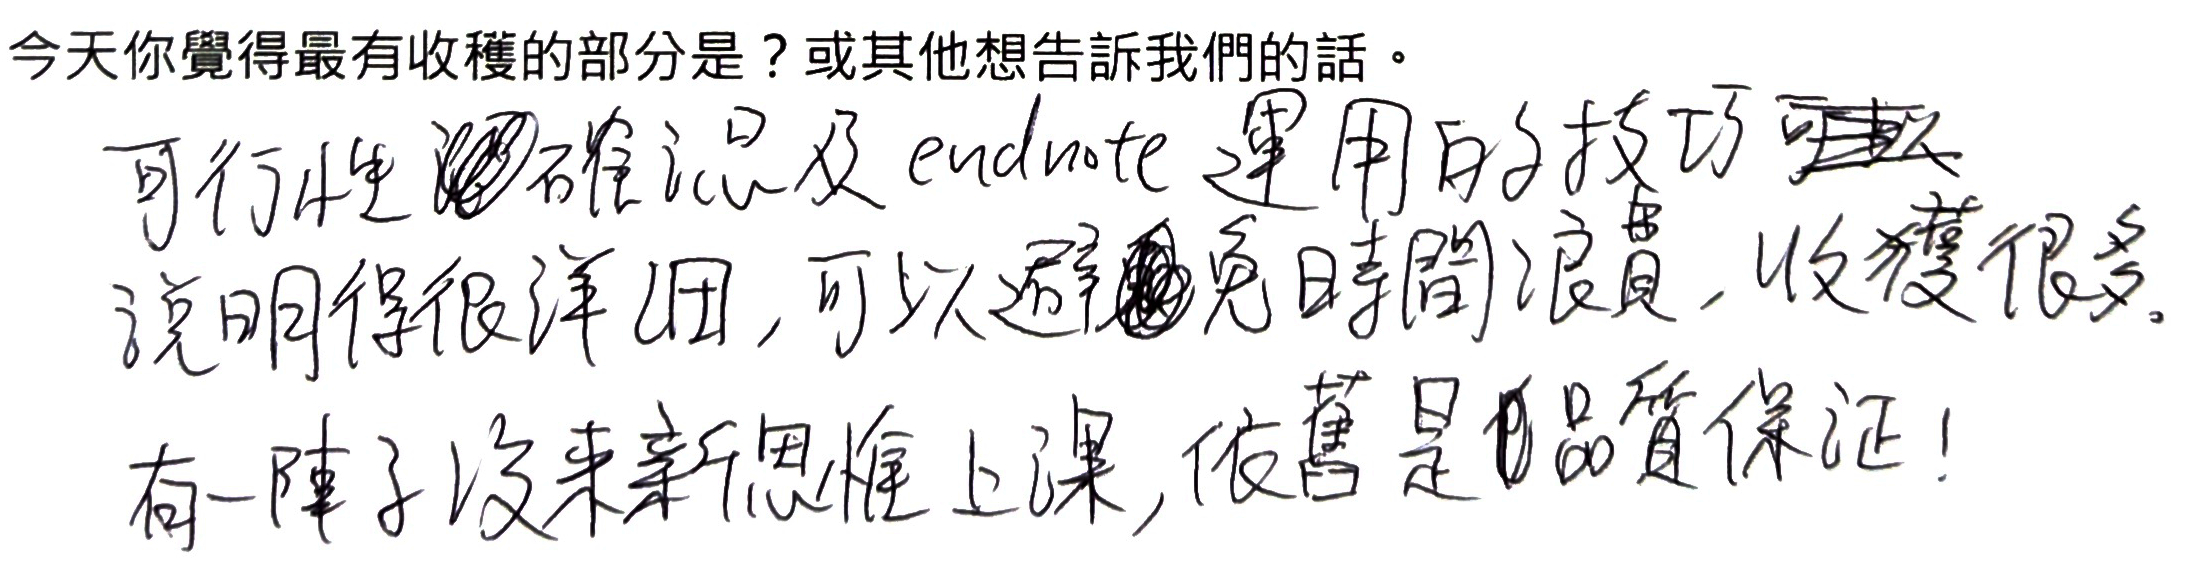 今天你覺得最有收穫的部分是？或其他想告訴我們的話。
可行性確認及endnote運用的技巧
說明得很詳細,可以避免時間浪費,收獲很多。
有一陣子沒來新思惟上課,依舊是品質保证!